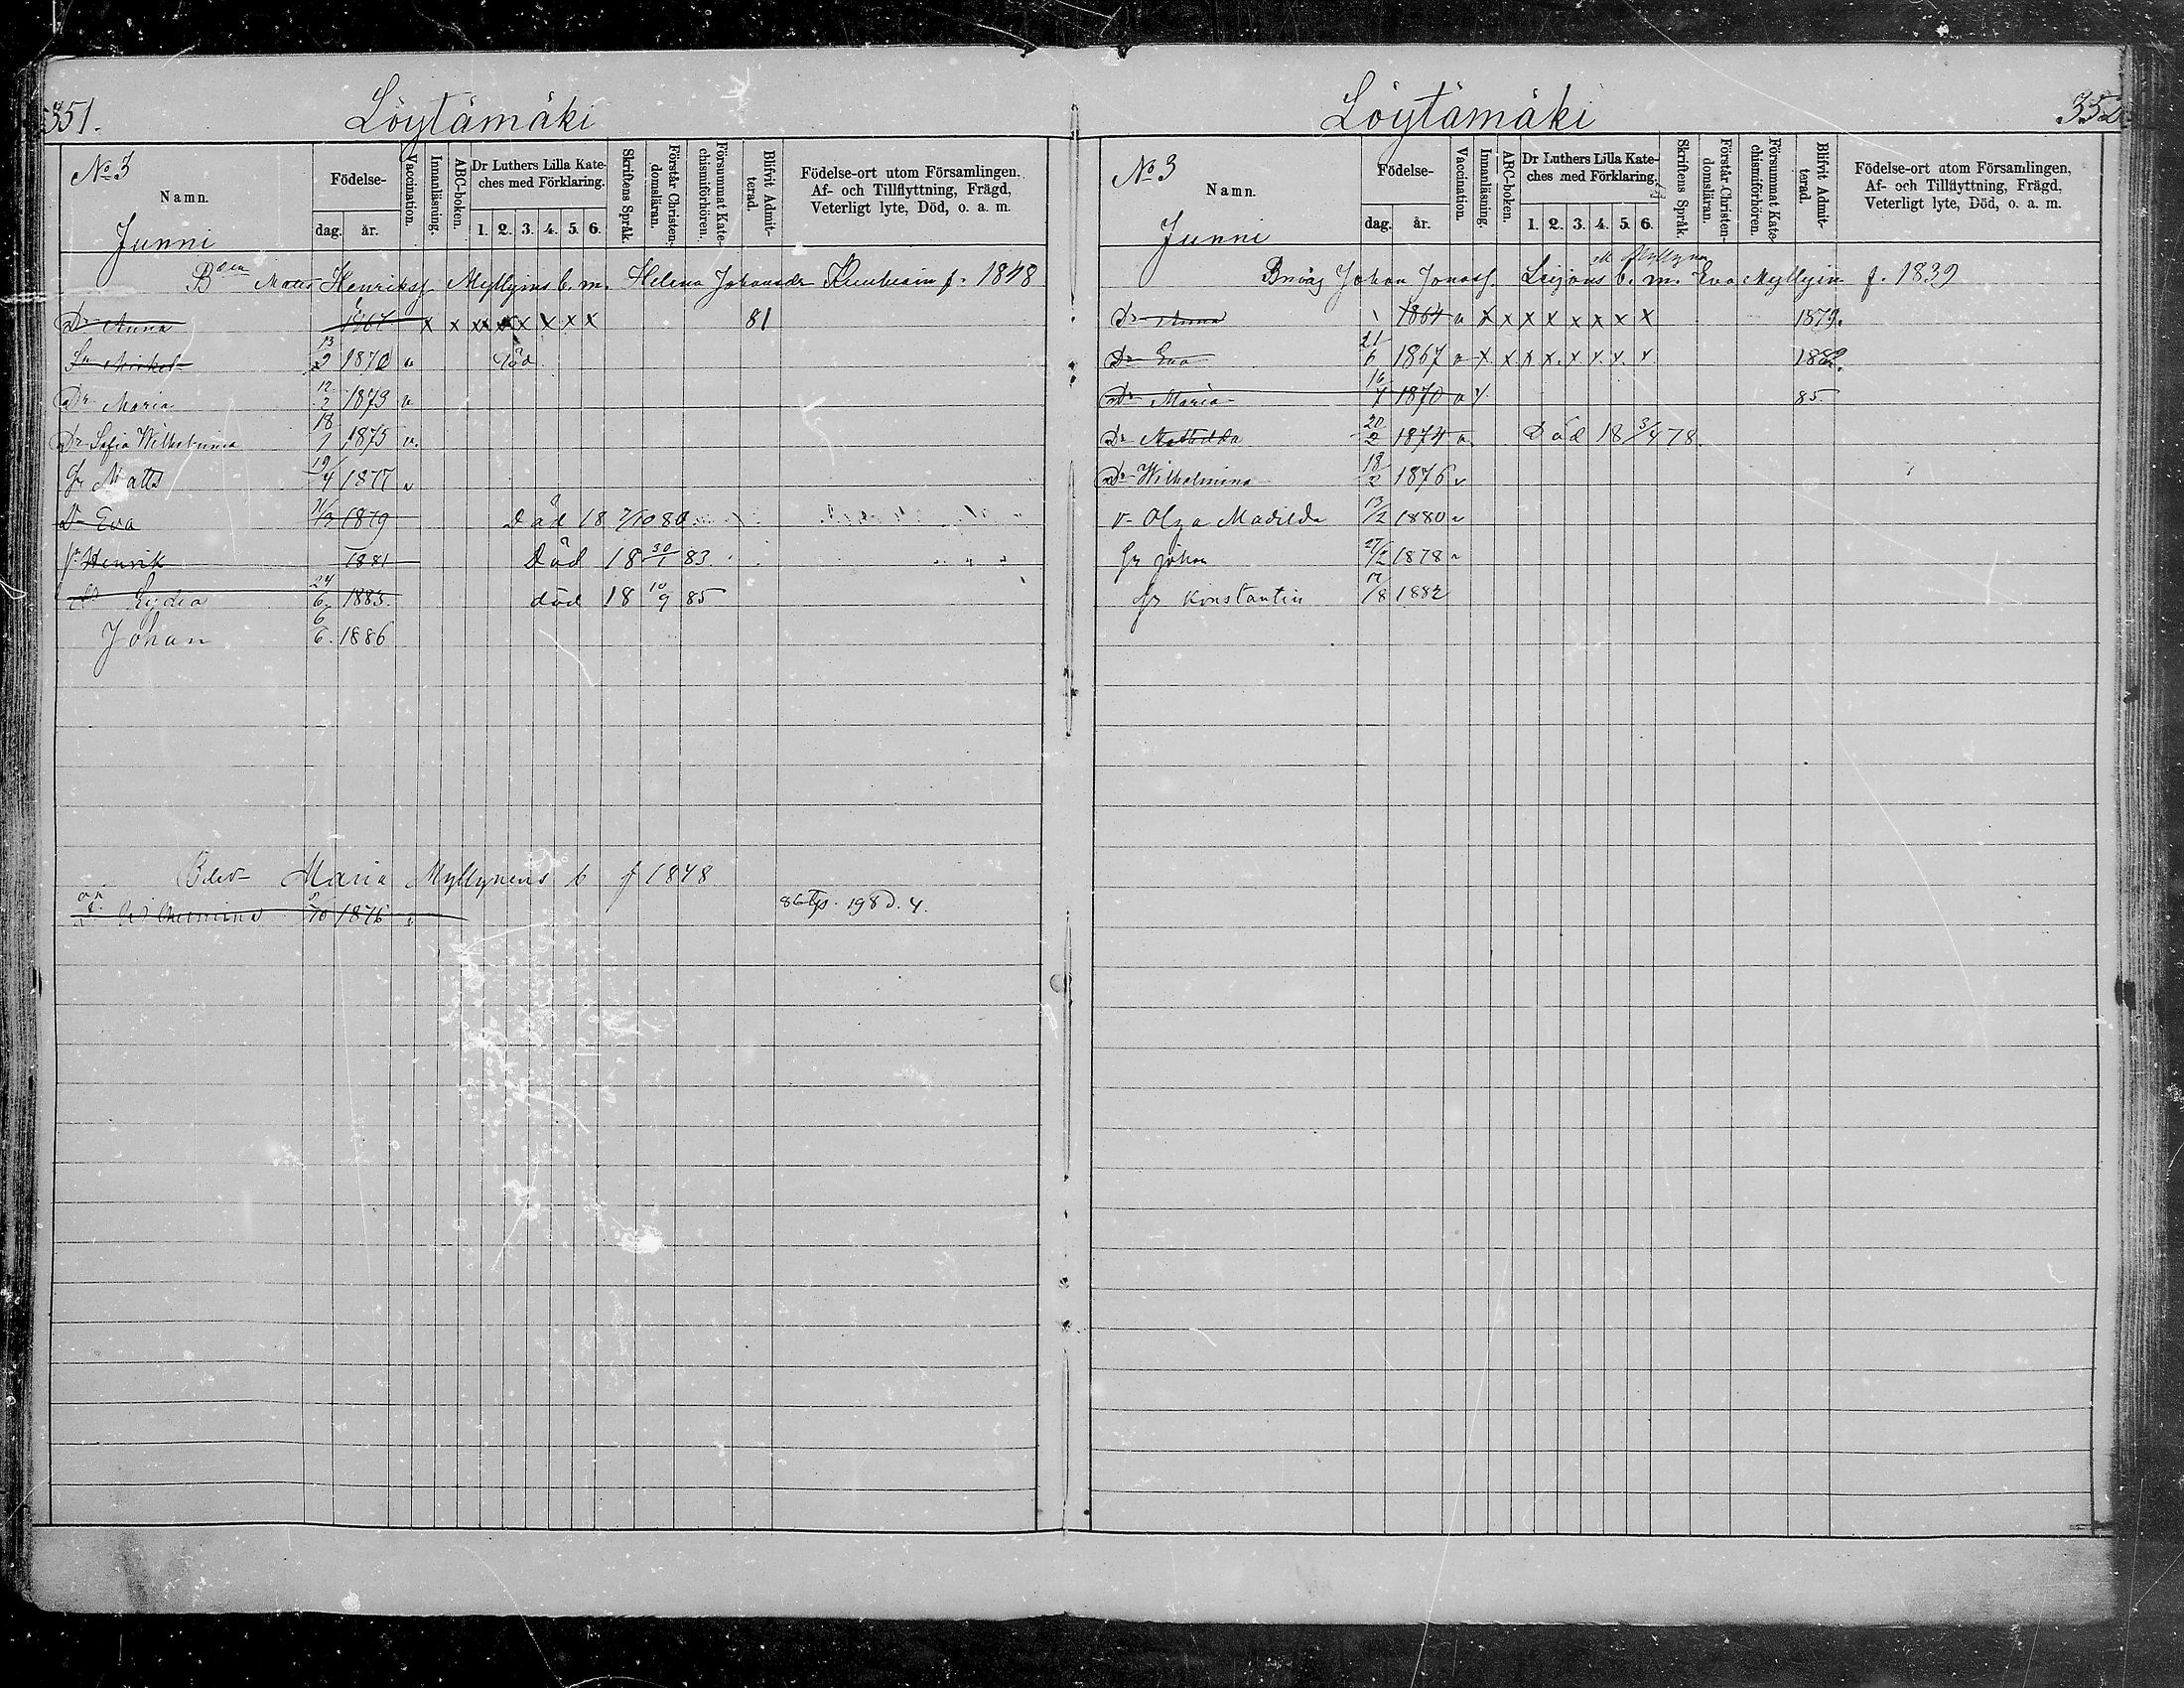 351. Löytämäki
No 3
Namn.
Junni
Födelse-
dag. år.
Vaccination.
Innanläsning.
ABC-boken.
Dr Luthers Lilla Kate-
ches med Förklaring.
1. 2. 3. 4. 5. 6.
Skriftens Språk.
Förstår Christen-
domsläran.
Försummat Kate-
chismiförhören.
Blifvit Admit-
terad.
Födelse-ort utom Församlingen.
Af- och Tillflyttning, Frägd,
Veterligt lyte, Död, o. a. m.
Bden Matts Henrikss Myllyins b. m. Helena Johansdr f. 1848
Dr Anna 1867 x x x x x x x x 81
Sn Mickel 13/2 1870 v död
Dr Maria 12/2 1873 v
Dr Sofia Wilhelmina 18/1 1875 v.
Gr Matts 19/4 1877 v
Dr Eva 1879 Död 18 7/10 80
Henrik 1881 Död 18 30/1 83
Lydia 24/6 1883. död 18 10/9 85
Johan 6/6. 1886
Maria Myllynens b f 1848
Wilhelmina 5/10 1876 v 86 198 D. 4.
Löytämäki 352
No 3
Namn.
Junni
Födelse-
dag. år.
Vaccination.
Innanläsning.
ABC-boken.
Dr Luthers Lilla Kate-
ches med Förklaring.
1. 2. 3. 4. 5. 6.
Skriftens Språk.
Förstår Christen-
domsläran.
Försummat Kate-
chismiförhören.
Blifvit Admit-
terad.
Födelse-ort utom Församlingen,
Af- och Tillflyttning, Frägd,
Veterligt lyte, Död, o. a. m.
Johan Jonass. b. m. Eva Myllyin f. 1839
Dr Anna 1864 v x x x x x x x x 1879.
Dr Eva 21/6 1867 v x x x x. x x. x. x. 1882.
Dr Maria 16/7 1870 v x 85
Dr Mathilda 20/2 1874 v Död 18 3/4 78
Dr Wilhelmina 18/2 1876 v
Olga Madilda 13/2 1880 v
Gr Johan 27/2 1878 v
Gr Konstantin 17/8 1882